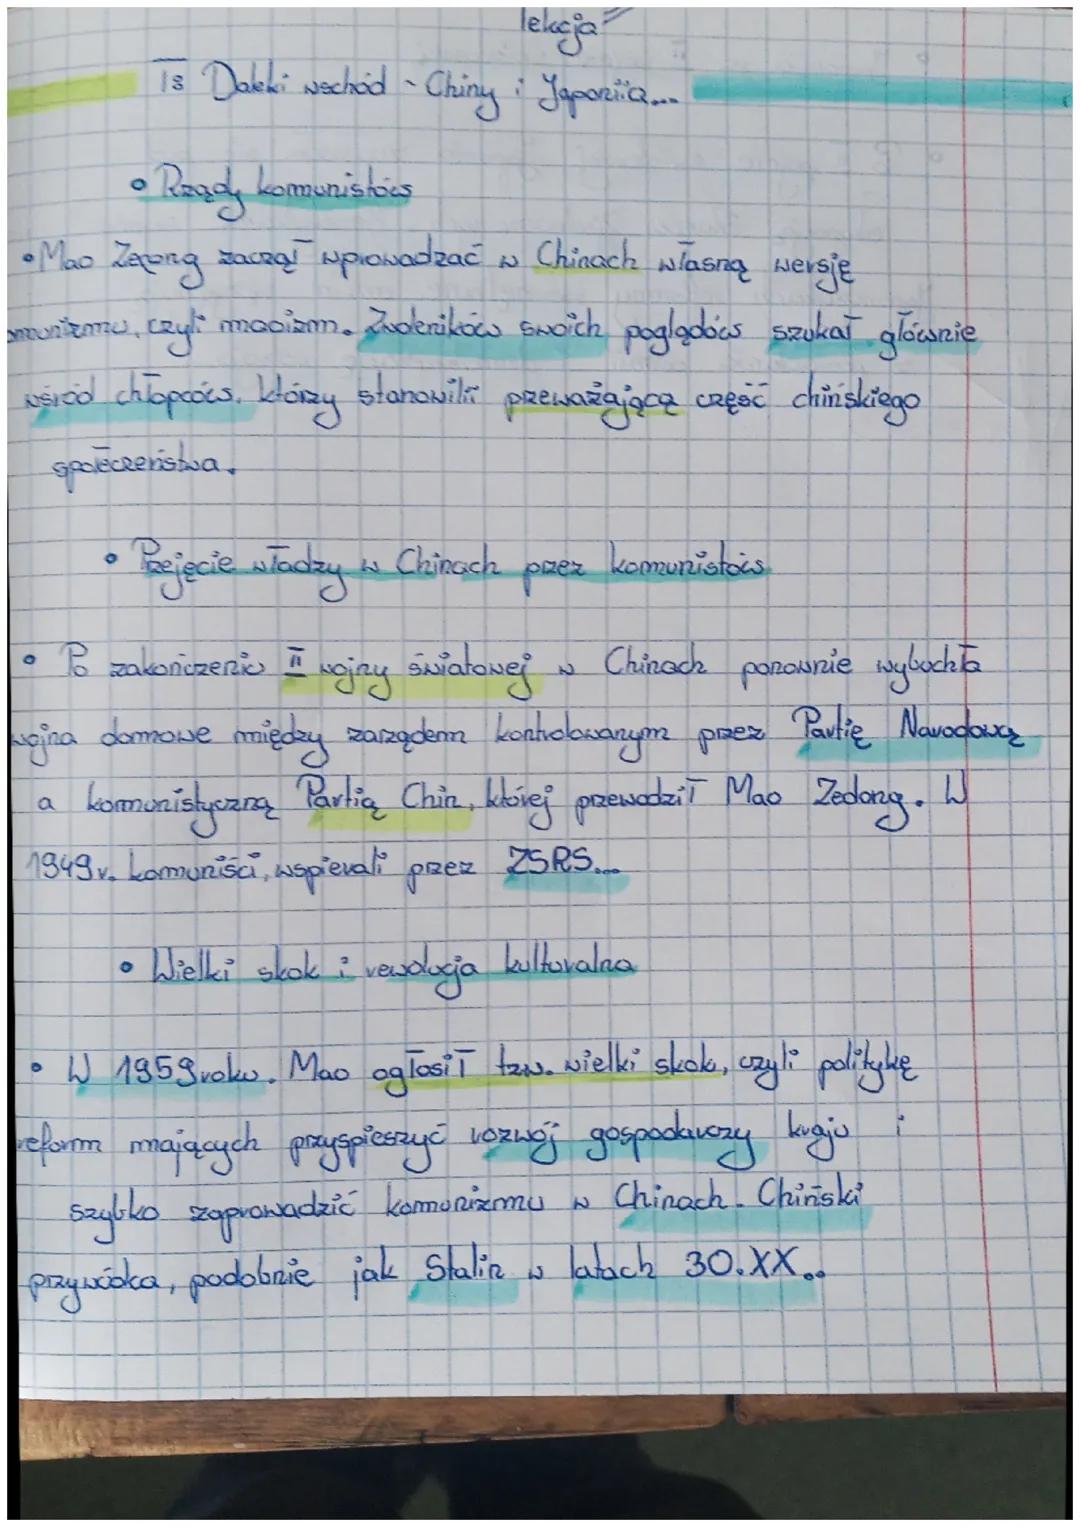 lekcja
13 Daleki wschód - Chiny i Japoniia...
• Rządy komunistów
• Mao Zedong zaczął wprowadzać w Chinach własną wersję
omunizmu, czyli maoizm. Zwoleników swoich poglądów szukał głównie
wśród chłopców, którzy stanowilii przeważającą część chińskiego
społeczeństwa.
• Przejęcie władzy w Chinach przez komunistów
• Po zakończeniu II wojny światowej w Chinach ponownie wybuchła
wojna domowe między zarządem kontrolowanym przez Partię Narodową
a komunistyczną Partią Chin, której przewodził Mao Zedong. W
1949r. komuniści, wspierali przez ZSRS...
• Wielki skok i rewolucja kulturalna
• W 1959roku. Mao ogłosił tzw. wielki skok, czyli politykę
reform mających przyspieszyć rozwój gospodarczy kraju i
szybko zaprowadzić komunizmu w Chinach. Chiński
przywódca, podobnie jak Stalin w latach 30.XX..